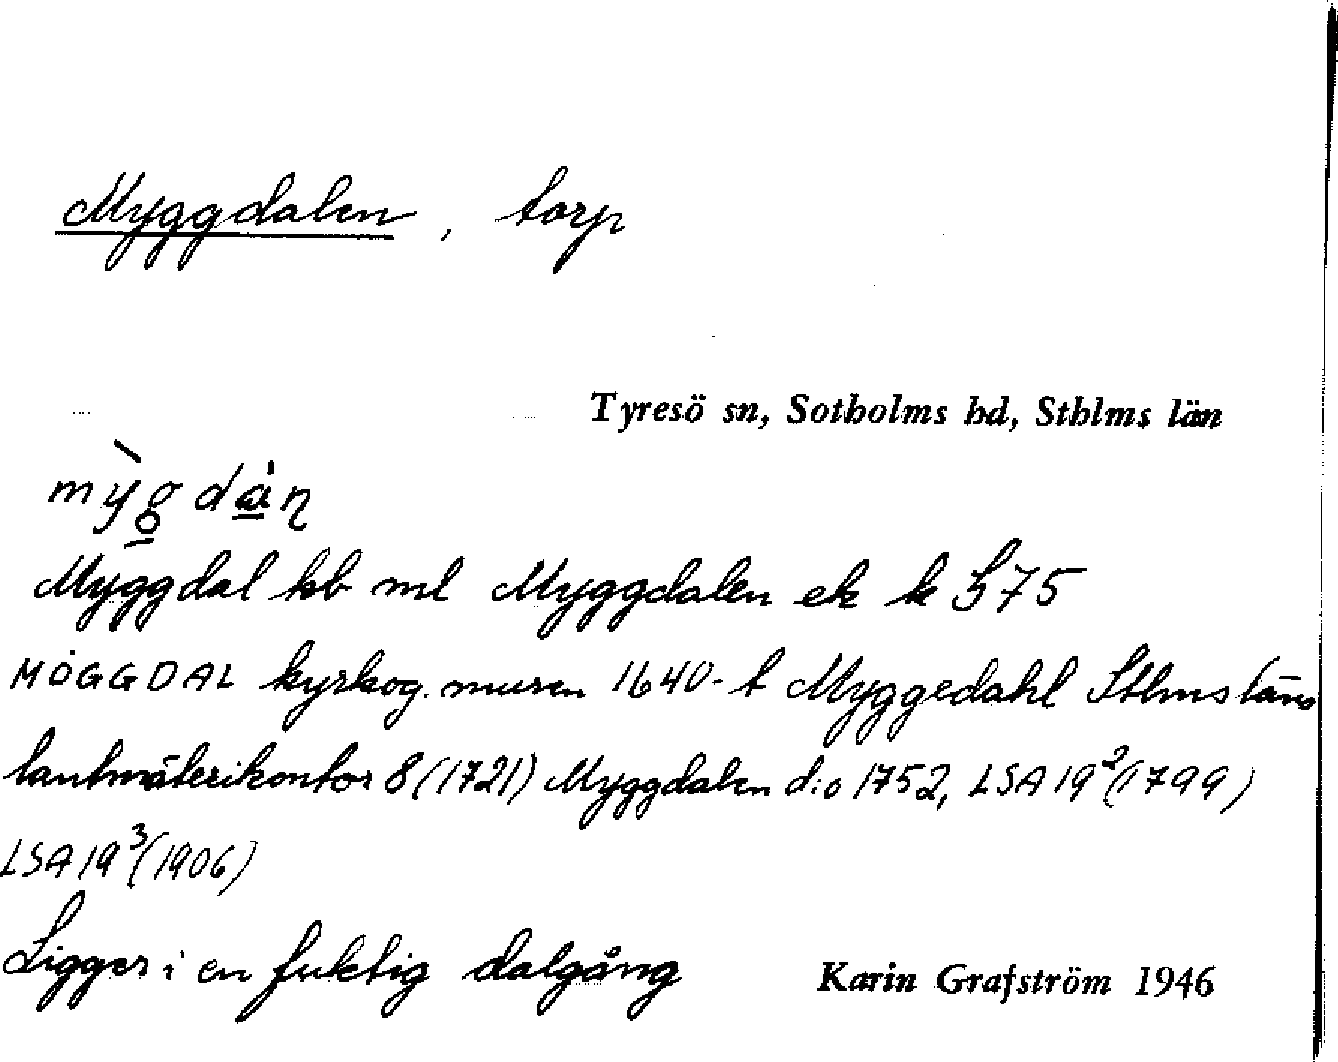 Myggdalen, torp
Tyresö sn, Sotholms hd, Sthlms län
Myggdal hb ml Myggdalen ek k 575
MÖGGDAL kyrkog. muren 1640-t Myggedahl Sthlms läns
lantmäterikontor 8 (1721) Myggdalen d:o 1752, LSA 19² (1799)
LSA 19³ (1906)
Ligger i en fuktig dalgång Karin Grafström 1946